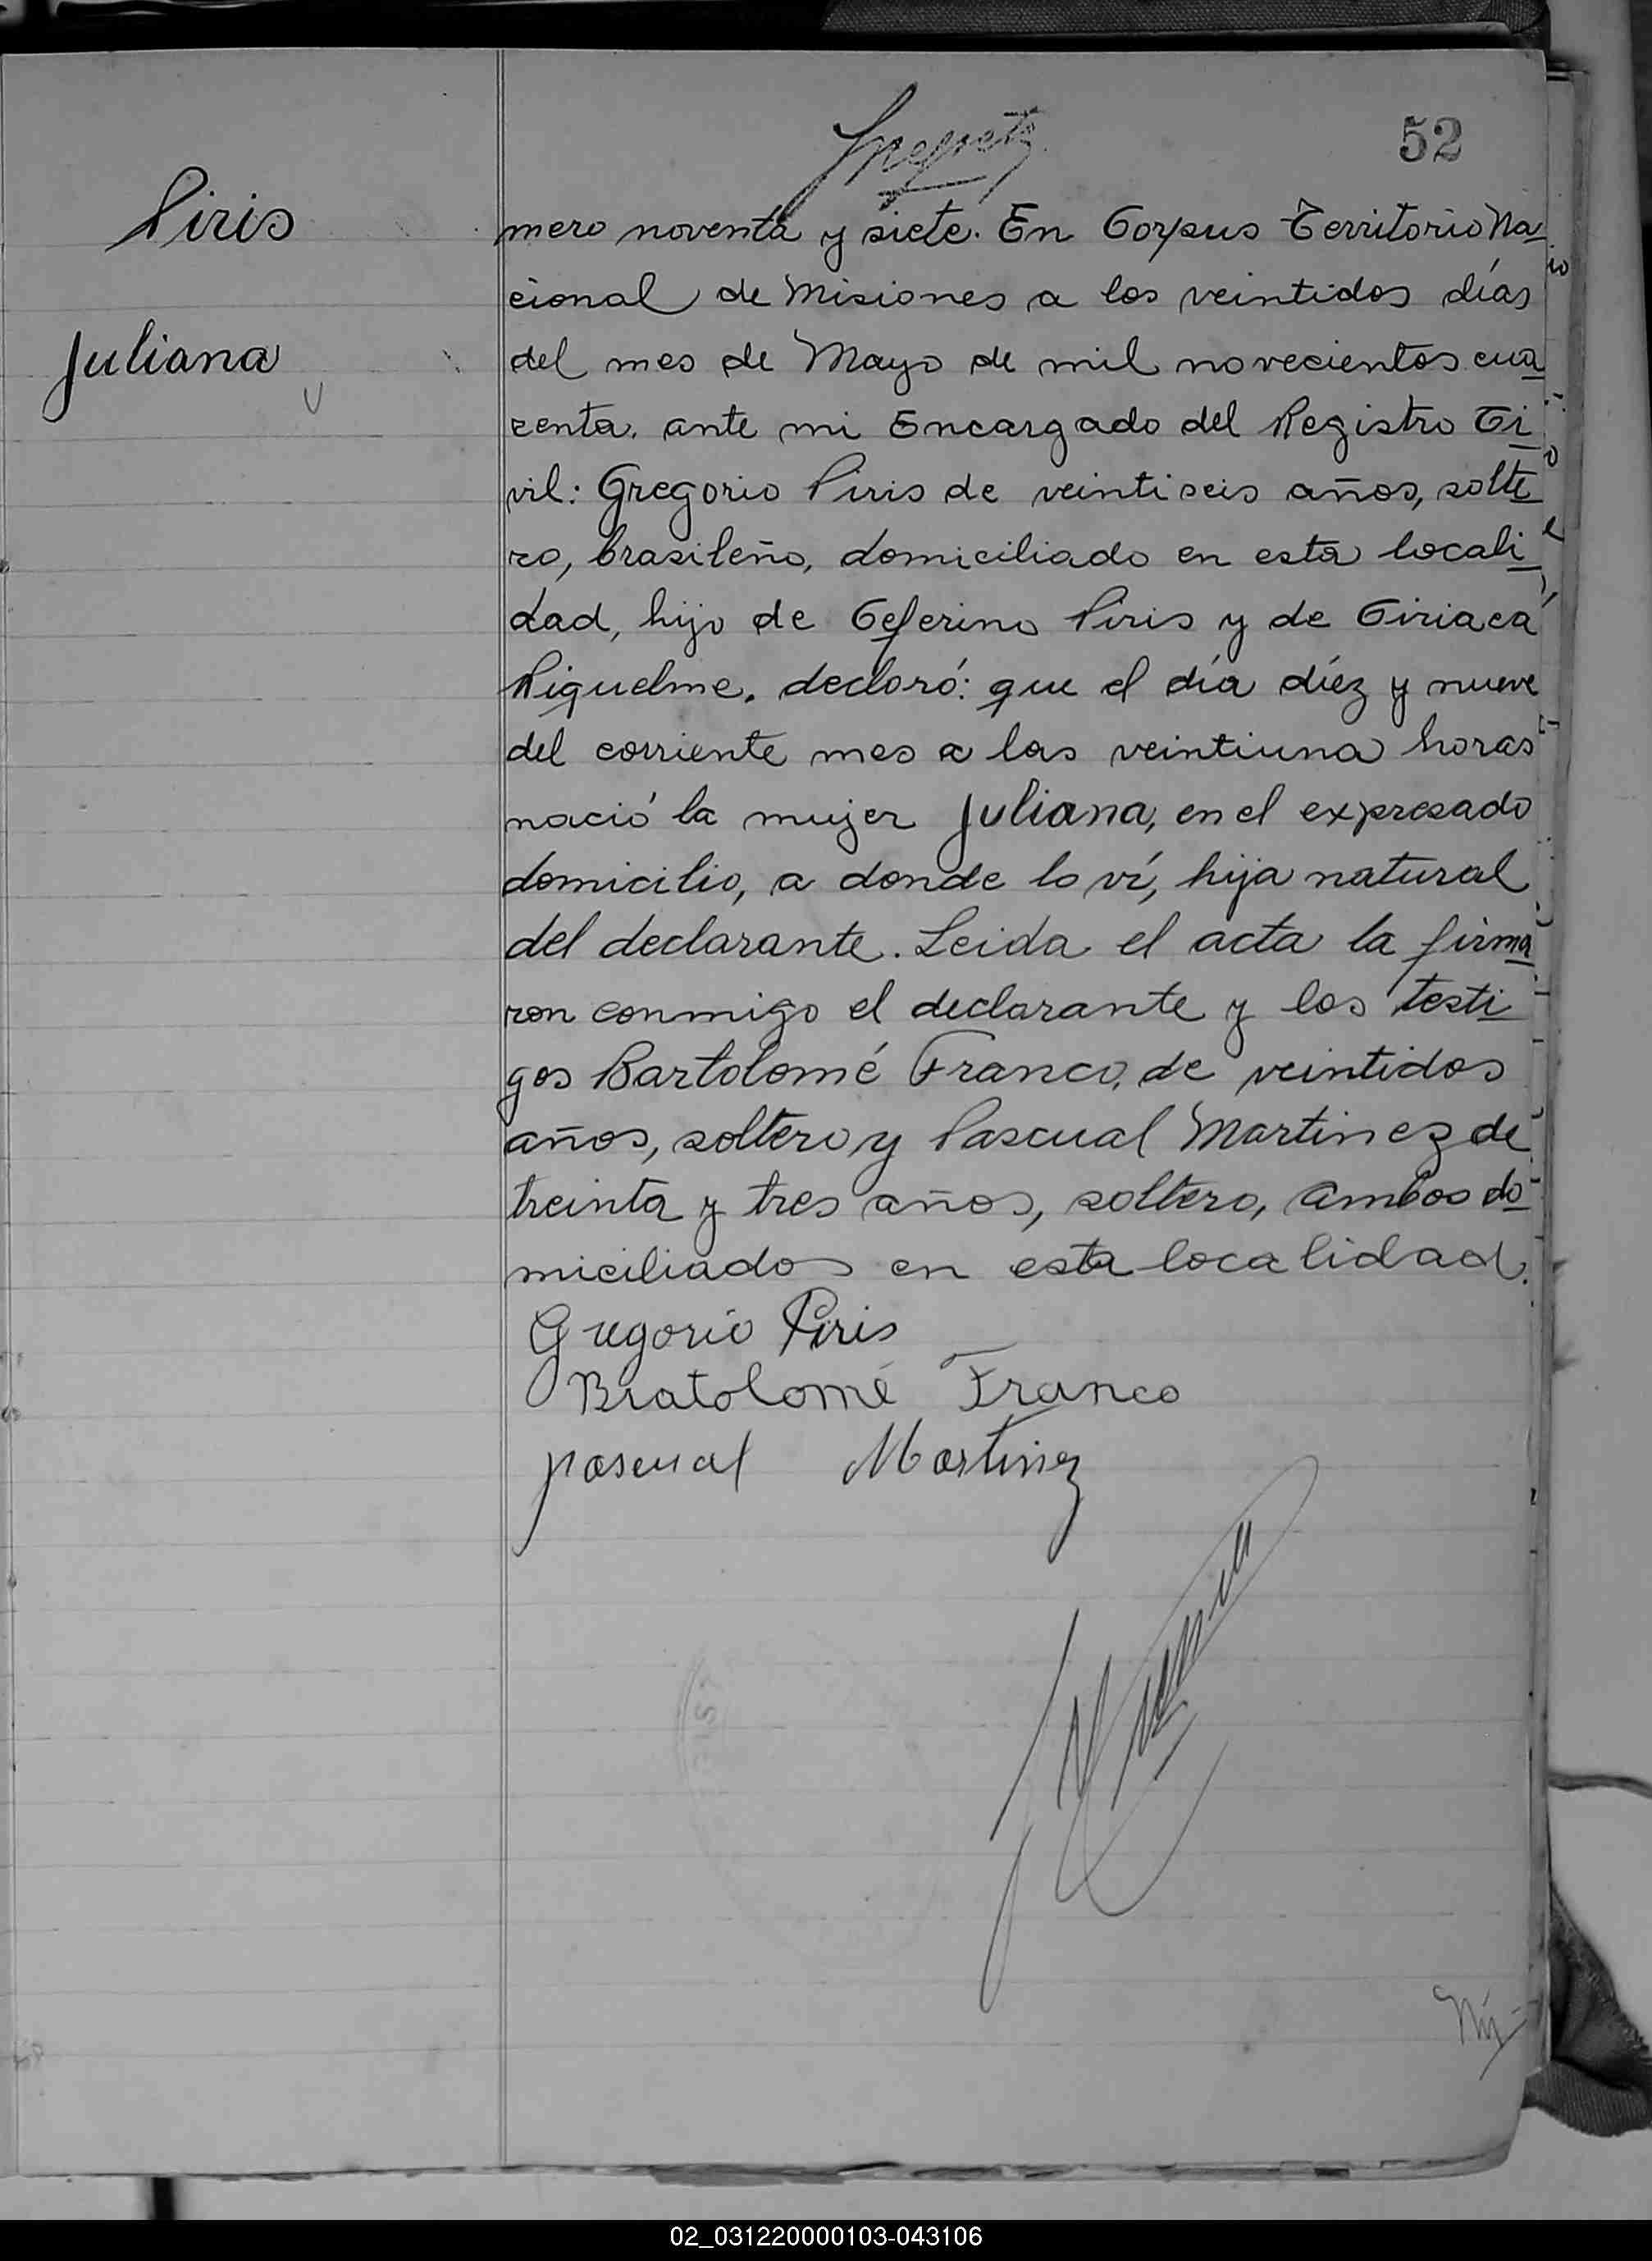 52
Piris
Juliana
mero noventa y siete. En Corpus Territorio Na
cional de Misiones a los veintidos días
del mes de Mayo de mil novecientos cua
renta, ante mi Encargado del Registro Ci
vil: Gregorio Piris de veintiseis años, solte
ro, brasileño, domiciliado en esta locali
dad, hijo de Ceferino Piris y de Ciriaca
Riquelme, decloró: que el día díez y nueve
del corriente mes a las veintiuna horas
nació la mujer Juliana, en el expresado
domicilio, a donde lo ví, hija natural
del declarante. Leida el acta la firma
ron conmigo el declarante y los testi
gos Bartolomé Franco, de veintidos
años, soltero y Pascual Martinez de
treinta y tres años, soltero, ambos do
miciliados en esta localidad.
Gregorio Piris
Bratolomé Franco
pascual Martinez
Nú
02_031220000103-043106